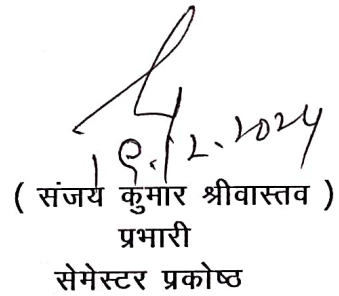 19.12.2024
( संजय कुमार श्रीवास्तव )
प्रभारी
सेमेस्टर प्रकोष्ठ